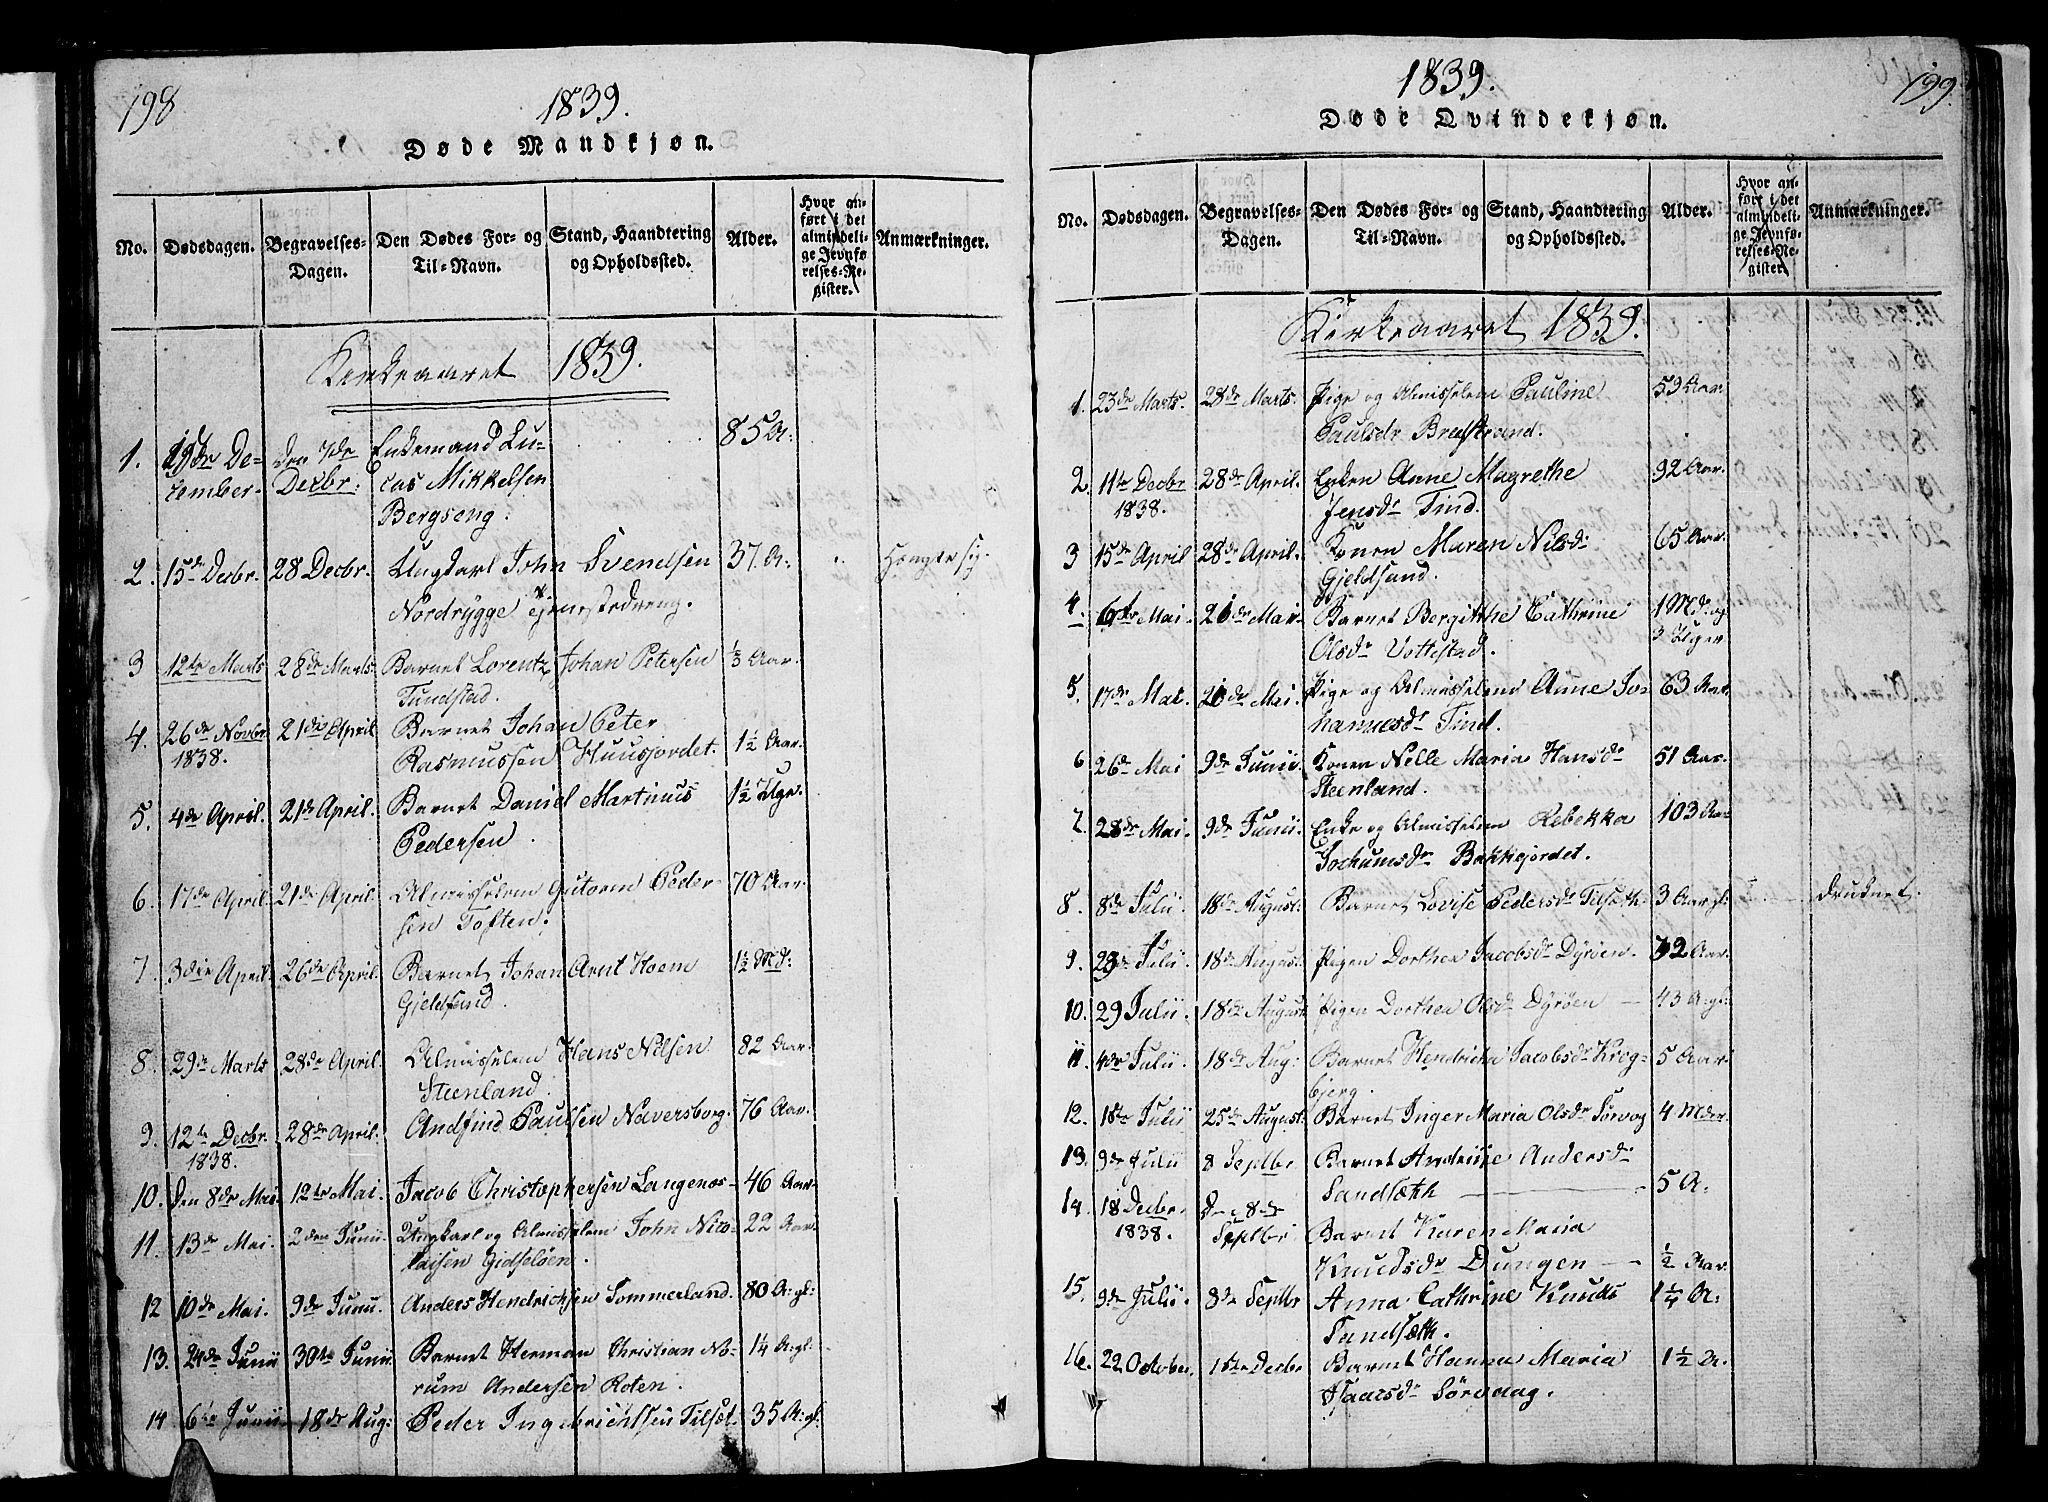 198
1839.
Døde Mandkjøn.
No. Dødsdagen. Begravelses-Dagen. Den Dødes For- og Til-Navn. Stand, Haandtering og Opholdssted. Alder. Hvor anført i det almindelige Jevnførelses-Register. Anmærkninger.
Kirkeaaret 1839.
1. De- den 7de Enkemand Lu- 85 A:
cember Decbr: cas Mikkelsen
Bergseng.
2. 15de Decbr. 28 Decbr. Ungkarl John Svendsen 37. A: Hængte sig.
Nordrygge Tjenestedreng.
3 12te Marts 28de Marts Barnet Lorentz Johan Petersen 1/3 Aar.
Tundstad.
4. 26de Novbr 21de April Barnet Johan Peter 1½ Aar.
1838. Rasmussen Huusjordet.
5. 4de April. 21de April. Barnet Daniel Martinus 1½ Uge.
Pedersen.
6. 17de April. 21de April. Almisselem Gutorm Peder- 70 Aar.
sen Toften.
7. 3die April 26de April. Barnet Johan Arnt Hoem 1½ Md:
Gjeldsand.
8. 29de Marts 28de April. Almisselem Hans Nilsen 82 Aar.
Steenland.
9. 12te Decbr. 28de April. Andfind Paulsen Naversborg. 76 Aar.
1838.
10. Den 8de Mai 12te Mai. Jacob Christophersen Langenes- 46 Aar.
11. 13de Mai. 2den Junii Ungkarl og Almisselem John Nico- 22 Aar.
laisen Gidseløen.
12 10de Mai. 9de Junii. Anders Hendrichsen Sommerland. 80 A: gl:
13. 24de Junii 30te Junii. Barnet Herman Christian No- 1¼ A: gl:
rum Andersen Roten.
14 6te Junii 18de Aug: Peder Ingebrichtsen Tilset. 35 A: gl.
1839.
199.
Døde Qvindekjøn.
No. Dødsdagen. Begravelses-Dagen. Den Dødes For- og Til-Navn. Stand, Haandtering og Opholdssted. Alder. Hvor anført i det almindelige Jevnførelses-Register. Anmærkninger.
Kirkeaaret 1839.
1. 23de Marts. 28de Marts. Pige og Almisselem Pauline 59 Aar.
Paulsdr Bredstrand.
2. 11te Decbr 28de April. Enken Anne Magrethe 92 Aar.
1838. Jensdr Tind.
3 15de April 28de April. Konen Maren Nilsdr 65 Aar.
Gjeldsand.
4. 6te Mai. 26de Mai. Barnet Bergitthe Cathrine 1 Md: og
Olsdr Vottestad. 3 Uger
5. 17de Mai. 26de Mai. Pige og Almisselem Anne Jo- 63 Aar.
hannesdr Tind.
6 26de Mai 9de Junii. Konen Nelle Maria Hansdr 51 Aar.
Steenland.
7. 28de Mai. 9de Junii. Enke og Almisselem Rebekka 103 Aar
Jochumsdr Bakkejordet.
8. 8de Julii. 18de August: Barnet Lovise Pedersdr Tilseth. 3 Aar gl: Druknet.
9. 29de Julii. 18de August. Pigen Dorthea Jacobsdr Dyrøen. 72 Aar.
10. 29 Julii. 18de August Pigen Dorthea Olsdr Dyrøen — 43 A: gl:
11 4de Julii. 18de Aug: Barnet Hendricha Jacobsdr Krog- 5 Aar.
bjerg.
12. 18de Julii 25de August. Barnet Inger Maria Olsdr Sørvog 4 Mder
13. 9de Julii 8 Septbr Barnet Andersdr
Sandsæth — 5 A:
14 18 Decbr. Den 8de Barnet Karen Maria
1838. Septbr Knudsdr Dungen — ½ Aar.
15. 9de Julii. 8de Septbr Anna Cathrine Knuds 1¼ A:
Sandsæth.
16. 22 October. 1ste Decbr Barnet Hanna Maria 1½ A.
Isaacsdr Sörvaag.